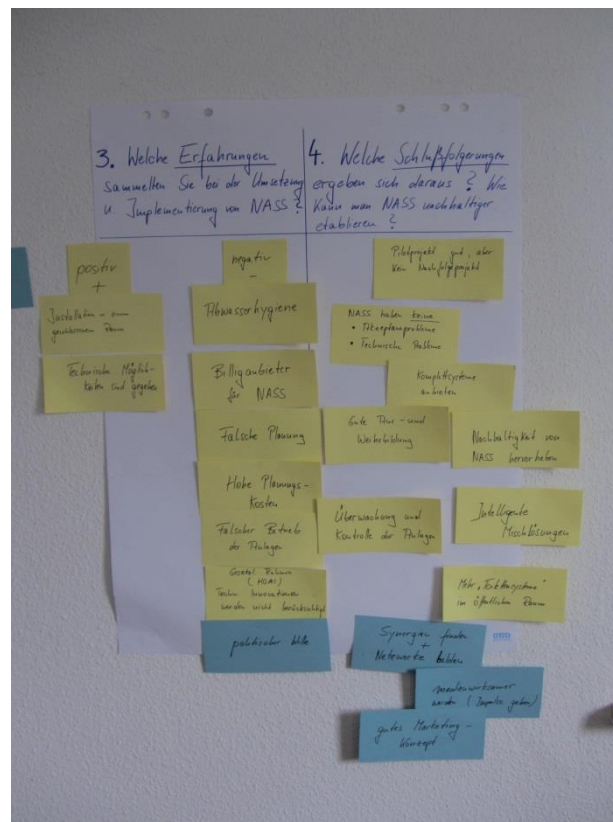 3. Welche Erfahrungen
sammelten Sie bei der Umsetzung
u. Implementierung von NASS?
4. Welche Schlußfolgerungen
ergeben sich daraus? Wie
kann man NASS nachhaltiger
etablieren?
positiv
+
Installation - einem
geschlossenen Raum
Technische Möglich-
keiten sind gegeben
negativ
-
Abwasserhygiene
Billiganbieter
für NASS
Falsche Planung
Hohe Planungs-
kosten
Falscher Betrieb
der Anlagen
Gesetzl. Rahmen
(HOAI)
Techn. Innovationen
werden nicht berücksichtigt
politischer Wille
Pilotprojekt gut, aber
kein Nachfolgeprojekt
NASS haben keine
• Akzeptanzprobleme
• Technische Probleme
Komplettsysteme
anbieten
Gute Aus- und
Weiterbildung
Nachhaltigkeit von
NASS hervorheben
Überwachung und
Kontrolle der Anlagen
Intelligente
Mischlösungen
Mehr „Toilettensysteme"
im öffentlichen Raum
Synergien finden
+
Netzwerke bilden
medienwirksamer
werden (Impulse geben)
gutes Marketing-
Konzept